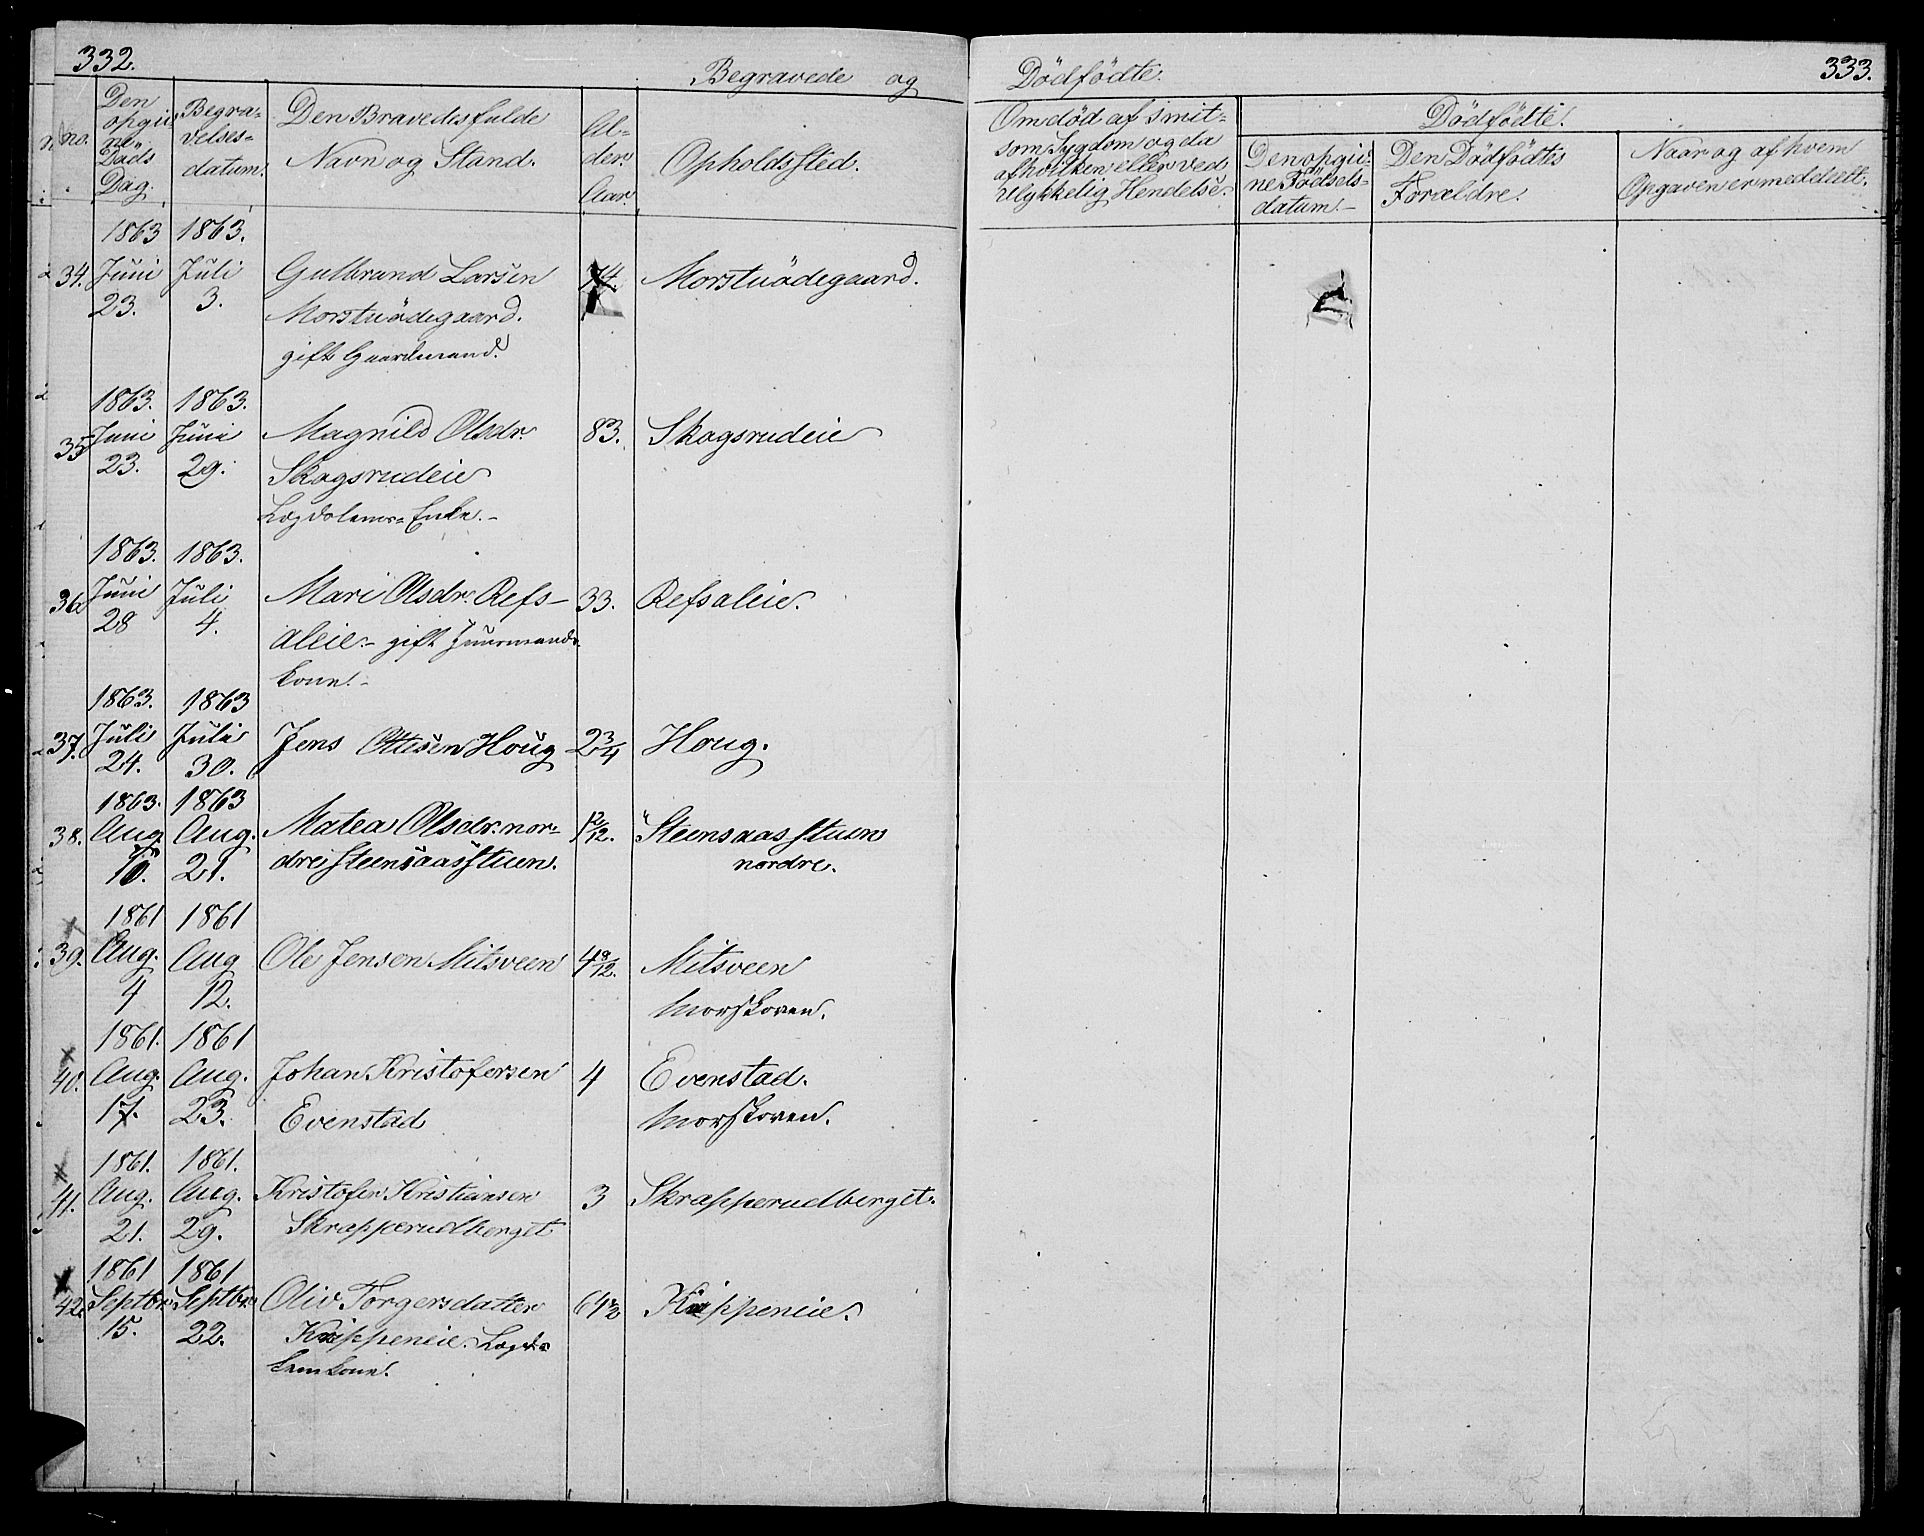 332.
Begravede og
Dödfödte.
333.
no.
Den opgivne Døds Dag.
Begravelsesdatum.
Den Bravedes fulde
Navn og Stand.
Alder. Aar.
Opholdssted.
Om död af smit-
som Sygdom og da
af hvilken eller ved
Ulykkelig Hendelse.
Dödfödte.
Den opgiv-
ne Födsels-
datum.
Den Dödfödtes
Forældre.
Naar og af hvem
Opgaven er meddelt.
1863 1863.
34. Juni Juli Gulbrand Larsen 74. Morstuödegaard.
23. 3. Morstuödegaard.
gift Gaardmand.
1863. 1863.
35 Juni Juni Magnild Olsdr. 83. Skogsrudeie
23. 29. Skogsrudeie
Lægdslems-Enke.
1863. 1863.
36. Juni Juli Mari Olsdr. Refs- 33. Refsaleie.
28 4. aleie.- gift Huusmands-
kone.-
1863. 1863
37. Juli Juli Jens Ottesen Houg 2 3/4 Houg.
24. 30.
1863. 1863
38. Aug Aug. Matea Olsdr. nor- 1 2/12. Steensaasstuen
10. 21. dre Steensaasstuen. nordre.
1861 1861
39. Aug. Aug Ole Jensen Mitsveen 4 9/12. Mitsveen
4 12. Morskoven.
1861. 1861
40. Aug. Aug. Johan Kristofersen 4 Evenstad.
17. 23. Evenstad Morskoven.
1861. 1861.
41. Aug. Aug. Kristofer Kristiansen 3 Skrapperudberget.
21. 29. Skrapperudberget
1861 1861
42. Septbr. Septbr. Oliv Torgersdatter Kippeneie.
15. 22. Kippeneie. Lægds-
lemkone.